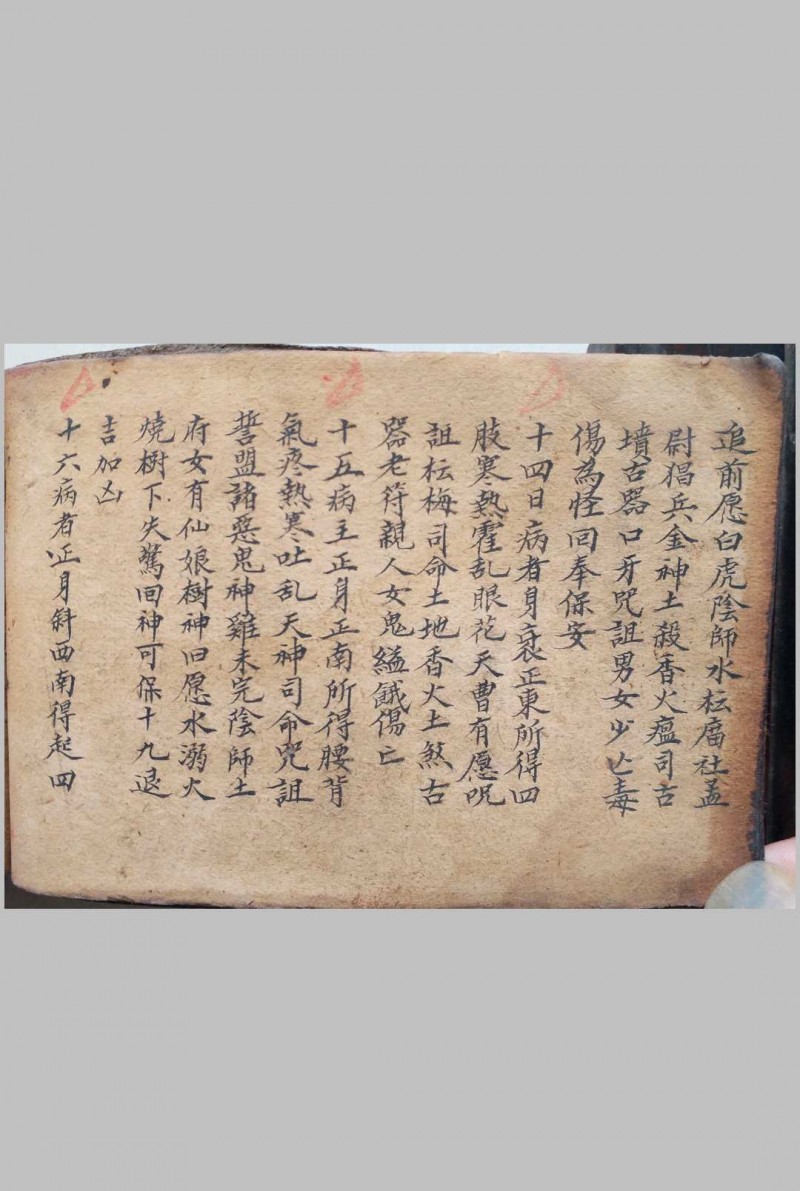 追前愿白虎陰師水枟庙社孟
尉猖兵金神土殺香火瘟司古
墳古器口牙咒詛男女少亡毒
傷為怪回奉保安
十四日病者身衰正東所得四
肢寒熱霍乱眼花天曹有愿呪
詛枟梅司命土地香火土煞古
器老符親人女鬼縊餓傷亡
十五病主正身正南所得腰背
氣疼熱寒吐乱天神司命咒詛
誓盟諸惡鬼神雞未完陰師土
府女有仙娘樹神旧愿水溺火
燒樹下失驚回神可保十九退
吉加凶
十六病者正身斜西南得起四